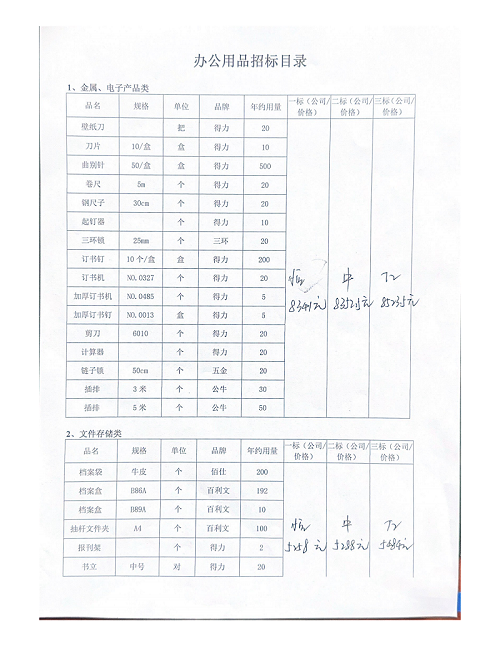 办公用品招标目录
1、金属、电子产品类
品名 规格 单位 品牌 年约用量 一标（公司/价格） 二标（公司/价格） 三标（公司/价格）
壁纸刀 把 得力 20
刀片 10/盒 盒 得力 10
曲别针 50/盒 盒 得力 500
卷尺 5m 个 得力 20
钢尺子 30cm 个 得力 20
起钉器 个 得力 10
三环锁 25mm 个 三环 20
订书钉 10个/盒 盒 得力 200
订书机 NO.0327 个 得力 20 恒 中
加厚订书机 NO.0485 个 得力 5
加厚订书钉 NO.0013 盒 得力 5
剪刀 6010 个 得力 20
计算器 个 得力 20
链子锁 50cm 个 五金 20
插排 3米 个 公牛 30
插排 5米 个 公牛 50
2、文件存储类
品名 规格 单位 品牌 年约用量 一标（公司/价格） 二标（公司/价格） 三标（公司/价格）
档案袋 牛皮 个 佰仕 200
档案盒 B86A 个 百利文 192
档案盒 B89A 个 百利文 10
抽杆文件夹 A4 个 百利文 100 恒 中
报刊架 个 得力 2 5258元 5288元 5484元
书立 中号 对 得力 20